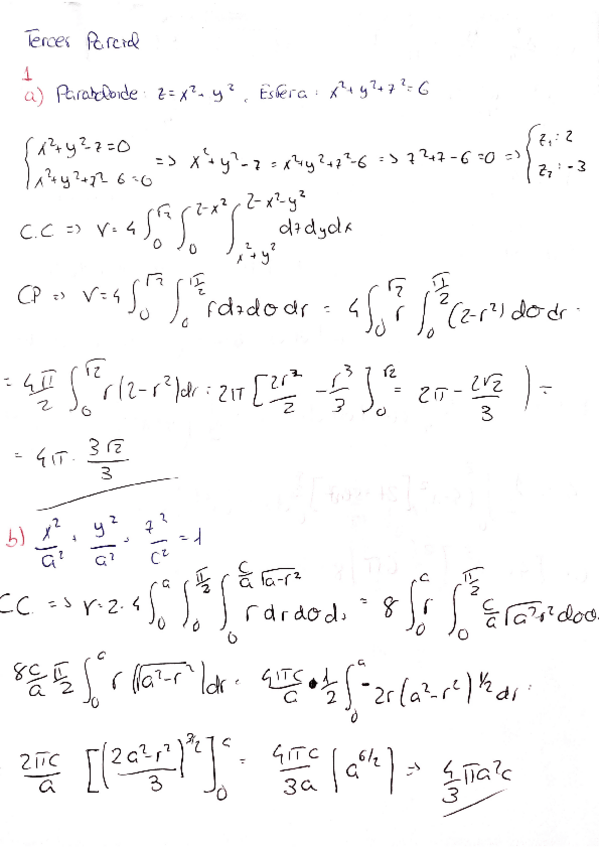 Tercer Parcial
1
a) Paraboloide: z = x² + y², Esfera: x² + y² + z² = 6
{ x² + y² - z = 0
x² + y² + z² - 6 = 0 => x² + y² - z = x² + y² + z² - 6 => z² + z - 6 = 0 => { z₁: 2
z₂: -3
C.C => V = 4 ∫₀^√2 ∫₀^(2-x²) ∫_(x²+y²)^(2-x²-y²) dz dy dx
CP => V = 4 ∫₀^√2 ∫₀^(π/2) r dz dσ dr = 4 ∫₀^√2 r ∫₀^(π/2) (2 - r²) dσ dr =
= 4π/2 ∫₀^√2 r (2 - r²) dr = 2π [2r²/2 - r³/3]₀^√2 = 2π - 2√2/3 ) =
= 4π · 3√2/3
b) x²/a² + y²/a² + z²/c² = 1
CC. => V = 2·4 ∫₀^a ∫₀^(π/2) ∫₀^(c/a √(a-r²)) r dr dσ d = 8 ∫₀^c r ∫₀^(π/2) c/a √(a²-r²) dσ
8c/a π/2 ∫₀^c r (√(a²-r²)) dr = 4πc/a · 1/2 ∫₀^a -2r (a²-r²)^(1/2) dr =
2πc/a [(2a²-r²/3)^(3/2)]₀^c = 4πc/3a (a^(6/2)) => 4/3 πa²c